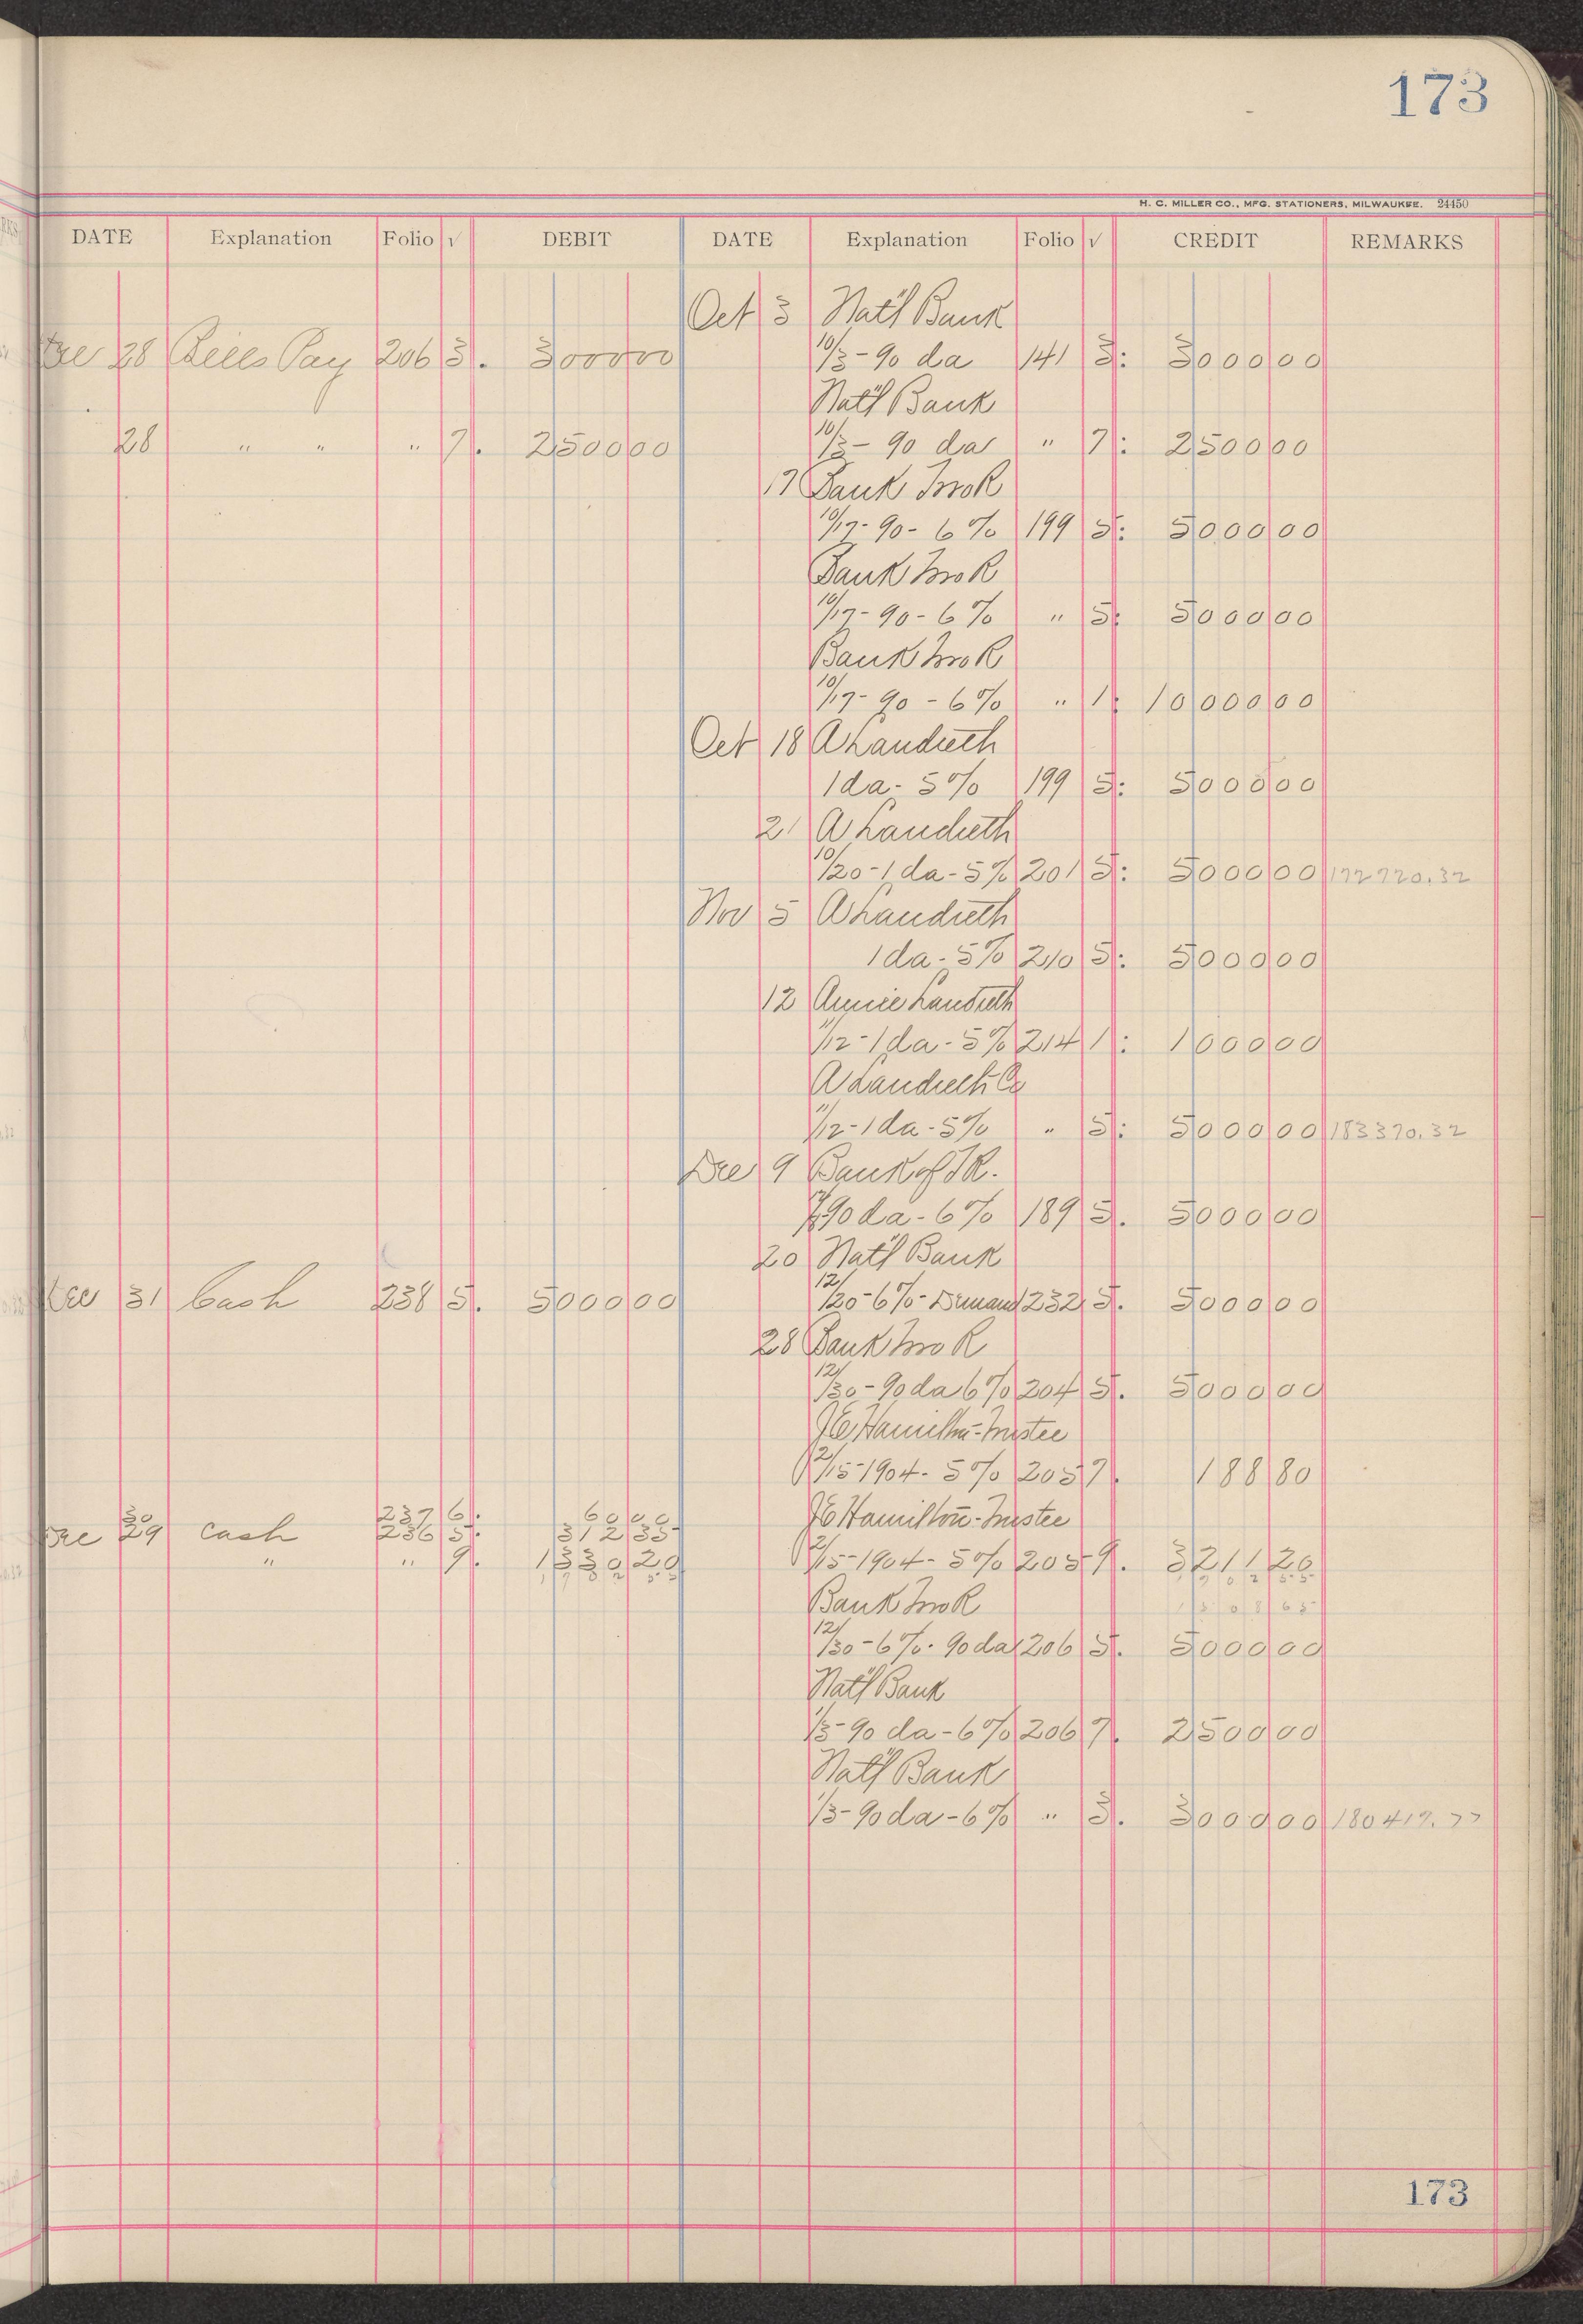 173
H. C. MILLER CO., MFG. STATIONERS, MILWAUKEE. 24450
DATE Explanation Folio √ DEBIT DATE Explanation Folio √ CREDIT REMARKS
Oct 3 Nat'l Bank
Dec 28 Bills Pay 206 3. 3000 00 10/3 - 90 da 141 3: 3000 00
Nat'l Bank
28 " " " 7. 2500 00 10/3 - 90 da " 7: 2500 00
17 Bank
10/17 - 90 - 6% 199 5: 5000 00
Bank
10/17 - 90 - 6% " 5: 5000 00
Bank
10/17 - 90 - 6% " 1: 10000 00
Oct 18 A Landreth
1 da - 5% 199 5: 5000 00
21 A Landreth
10/20 - 1 da - 5% 201 5: 5000 00 172720.32
Nov 5 A Landreth
1 da - 5% 210 5: 5000 00
12 Annie Landreth
11/12 - 1 da - 5% 214 1: 1000 00
A Landreth Co
11/12 - 1 da - 5% " 5: 5000 00 183370.32
Dec 9 Bank of
90 da - 6% 189 5. 5000 00
20 Nat'l Bank
Dec 31 Cash 238 5. 5000 00 12/20 - 6% - Demand 232 5. 5000 00
28 Bank
12/30 - 90 da 6% 204 5. 5000 00
Hamilton - Trustee
12/15 - 1904 - 5% 205 7. 188 80
30 237 6. 60 00 Hamilton - Trustee
Dec 29 Cash 236 5. 312 35
" " 9. 1330 20 12/15 - 1904 - 5% 205 9. 3211 20
Bank 1508 65
12/30 - 6% - 90 da 206 5. 5000 00
Nat'l Bank
1/3 - 90 da - 6% 206 7. 2500 00
Nat'l Bank
1/3 - 90 da - 6% " 3. 3000 00 180417.77
173